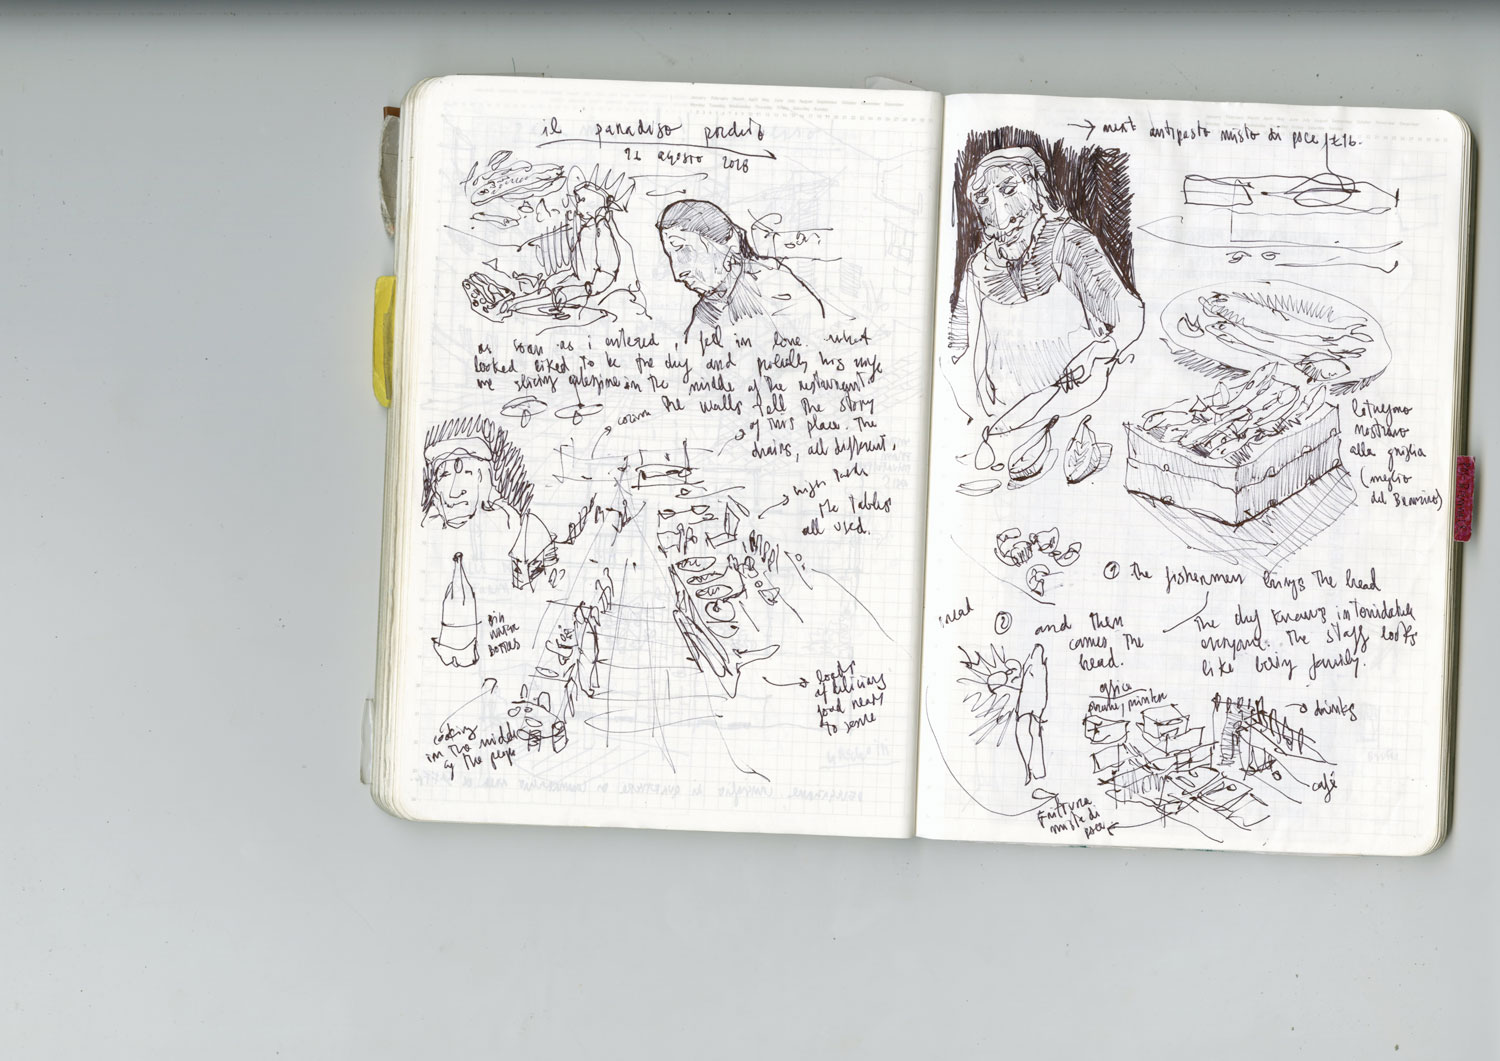 il paradiso perduto
21 agosto 2018
as soon as i entered, fell in love. what
looked liked to be the day and probably his wife
me slicing aubergine in the middle of the restaurant.
the walls tell the story
of this place. The
chairs, all different.
high table
the tables
all used.
big
water
bottles
cooking
in the middle
of the people
loads
of delicious
food ready
to serve
→ next antipasto misto di pesce £16.
nostrano
alla griglia
(meglio
del Branzino)
① the fishermen brings the bread
② and then
comes the
bread.
bread
The day knows
everyone. The staff looks
like being family.
office
phone, printer
→ drinks
café
Frittura
mista di
pesce